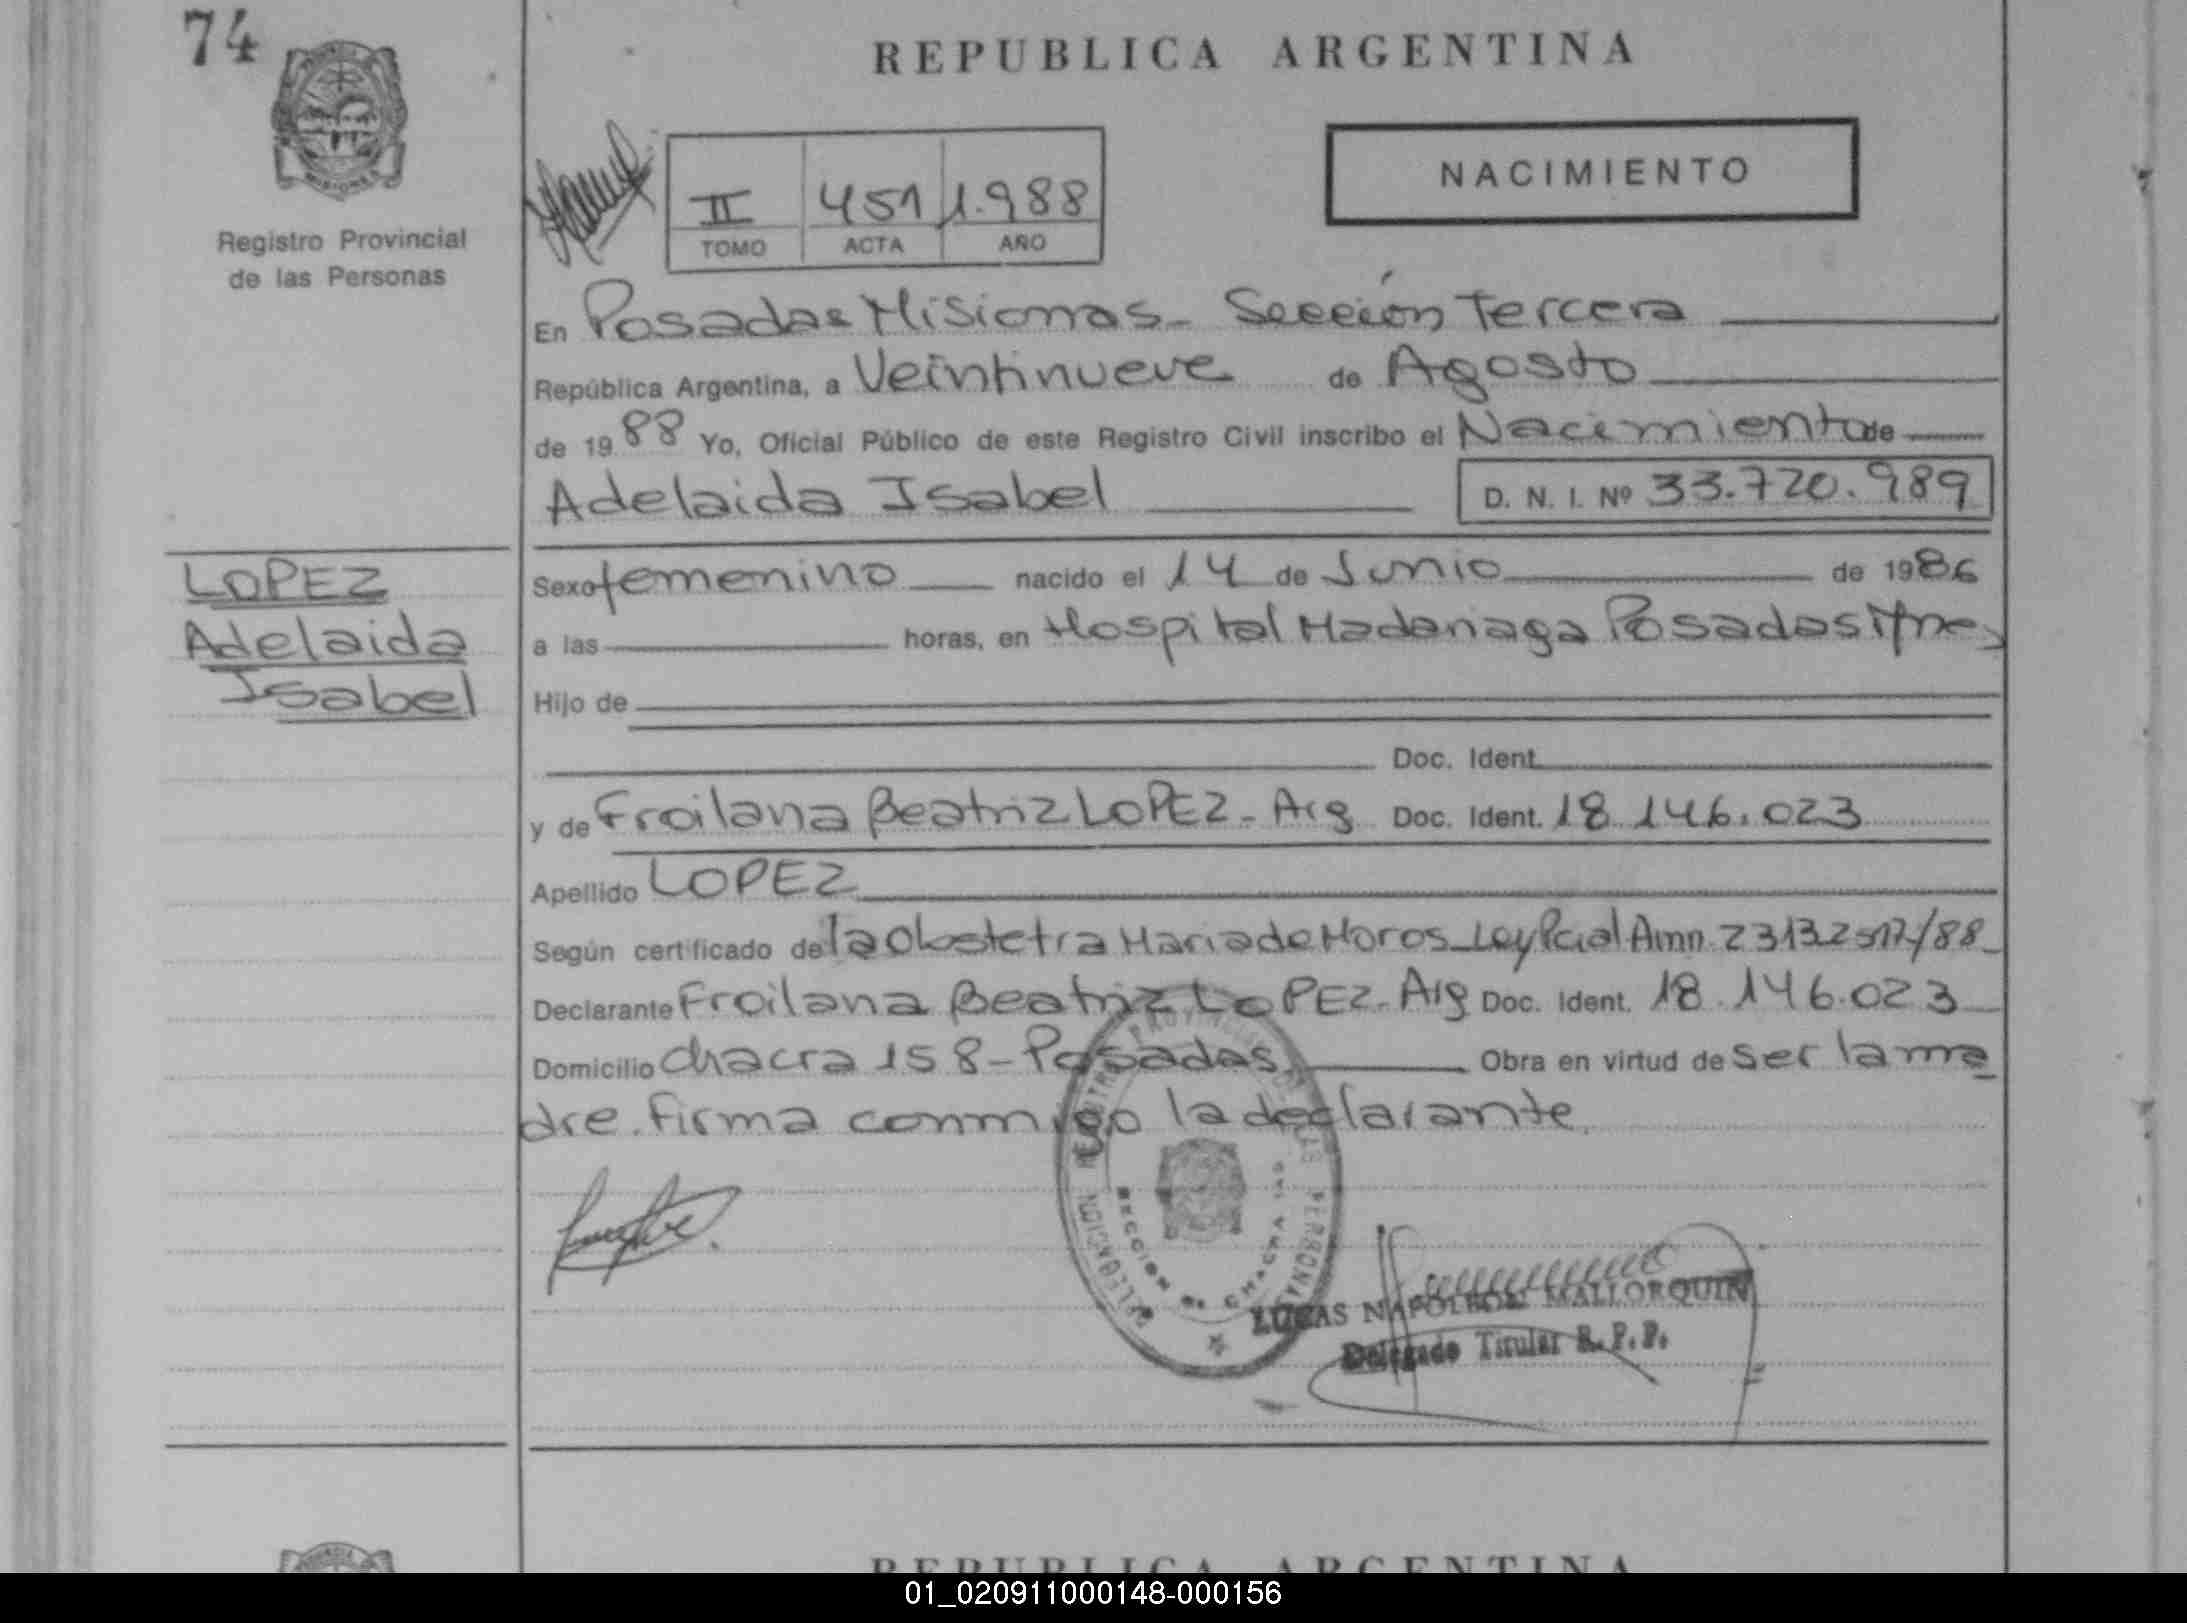 74
REPUBLICA ARGENTINA
MISIONES
Registro Provincial
de las Personas
II 451 1.988
TOMO ACTA AÑO
NACIMIENTO
En Posadas Misiones - Sección Tercera
República Argentina, a Veintinueve de Agosto
de 1988 Yo, Oficial Público de este Registro Civil inscribo el Nacimiento de
Adelaida Isabel D. N. I. Nº 33.720.989
LOPEZ
Adelaida
Isabel
Sexo femenino nacido el 14 de Junio de 1986
a las horas, en Hospital Madariaga Posadas Mnes
Hijo de
Doc. Ident.
y de Froilana Beatriz LOPEZ - Arg Doc. Ident. 18.146.023
Apellido LOPEZ
Según certificado de la Obstetra Maria de Moros - Ley Pcial Amn. 2313
Declarante Froilana Beatriz LOPEZ - Arg Doc. Ident. 18.146.023
Domicilio chacra 158 - Posadas. Obra en virtud de ser la ma
dre. firma conmigo la declarante.
LUCAS NAPOLEON MALLORQUIN
Delegado Titular R. P. P.
REPUBLICA ARGENTINA
01_020911000148-000156